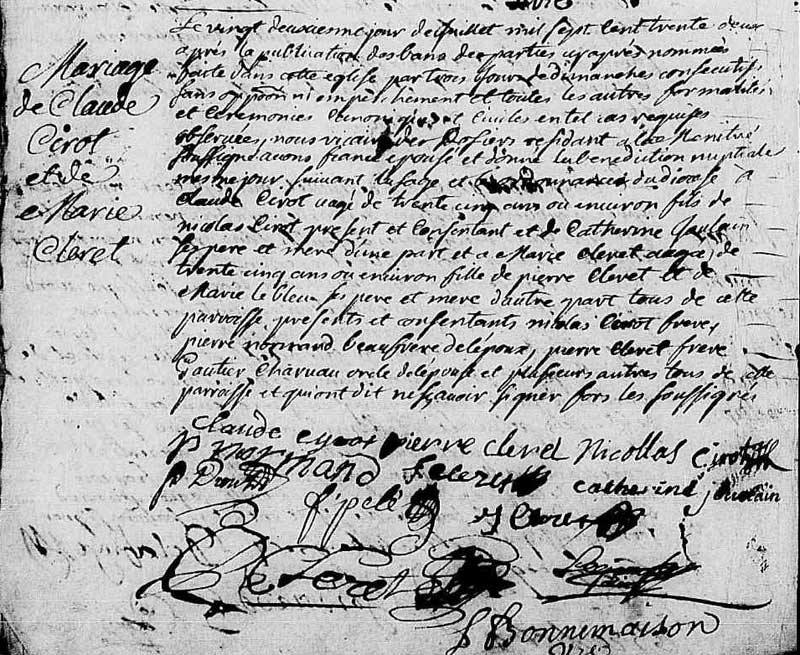 Mariage
de Claude
Cirot
et de
Marie
Cleret
Le vingt deuxiesme jour de juillet mil sept cent trente deux
apres la publication des bans des parties cy apres nommés
faite dans cette eglise par trois jours de dimanches consecutifs
sans ni empeschement et toutes les autres formalites
et ceremonies et civiles en tel cas requises
observees, nous vicaire des Rosiers residant à la Menitré
soussigné avons fiancé epousé et donné la benediction nuptiale
mesme jour suivant lusage et du diocese à
Claude Cirot aagé de trente cinq ans ou environ fils de
nicolas Cirot present et consentant et de Catherine Jaulain
ses pere et mere d'une part et a Marie Cleret aagée de
trente cinq ans ou environ fille de pierre Cleret et de
Marie le bleu ses pere et mere d'autre part tous de cette
parroisse, presents et consentants nicolas Cirot frere,
pierre normand beaufrere de lepoux, pierre Cleret frere
Gautier Charuau oncle de lepouse et plusieurs autres tous de cette
parroisse et qui ont dit ne scavoir signer fors les soussignes
Claude Cyrot pierre cleret Nicollas Cirot
P Normand F Cleret
P catherine Jaulain
f. pelé
Cleret
S Bonnemaison